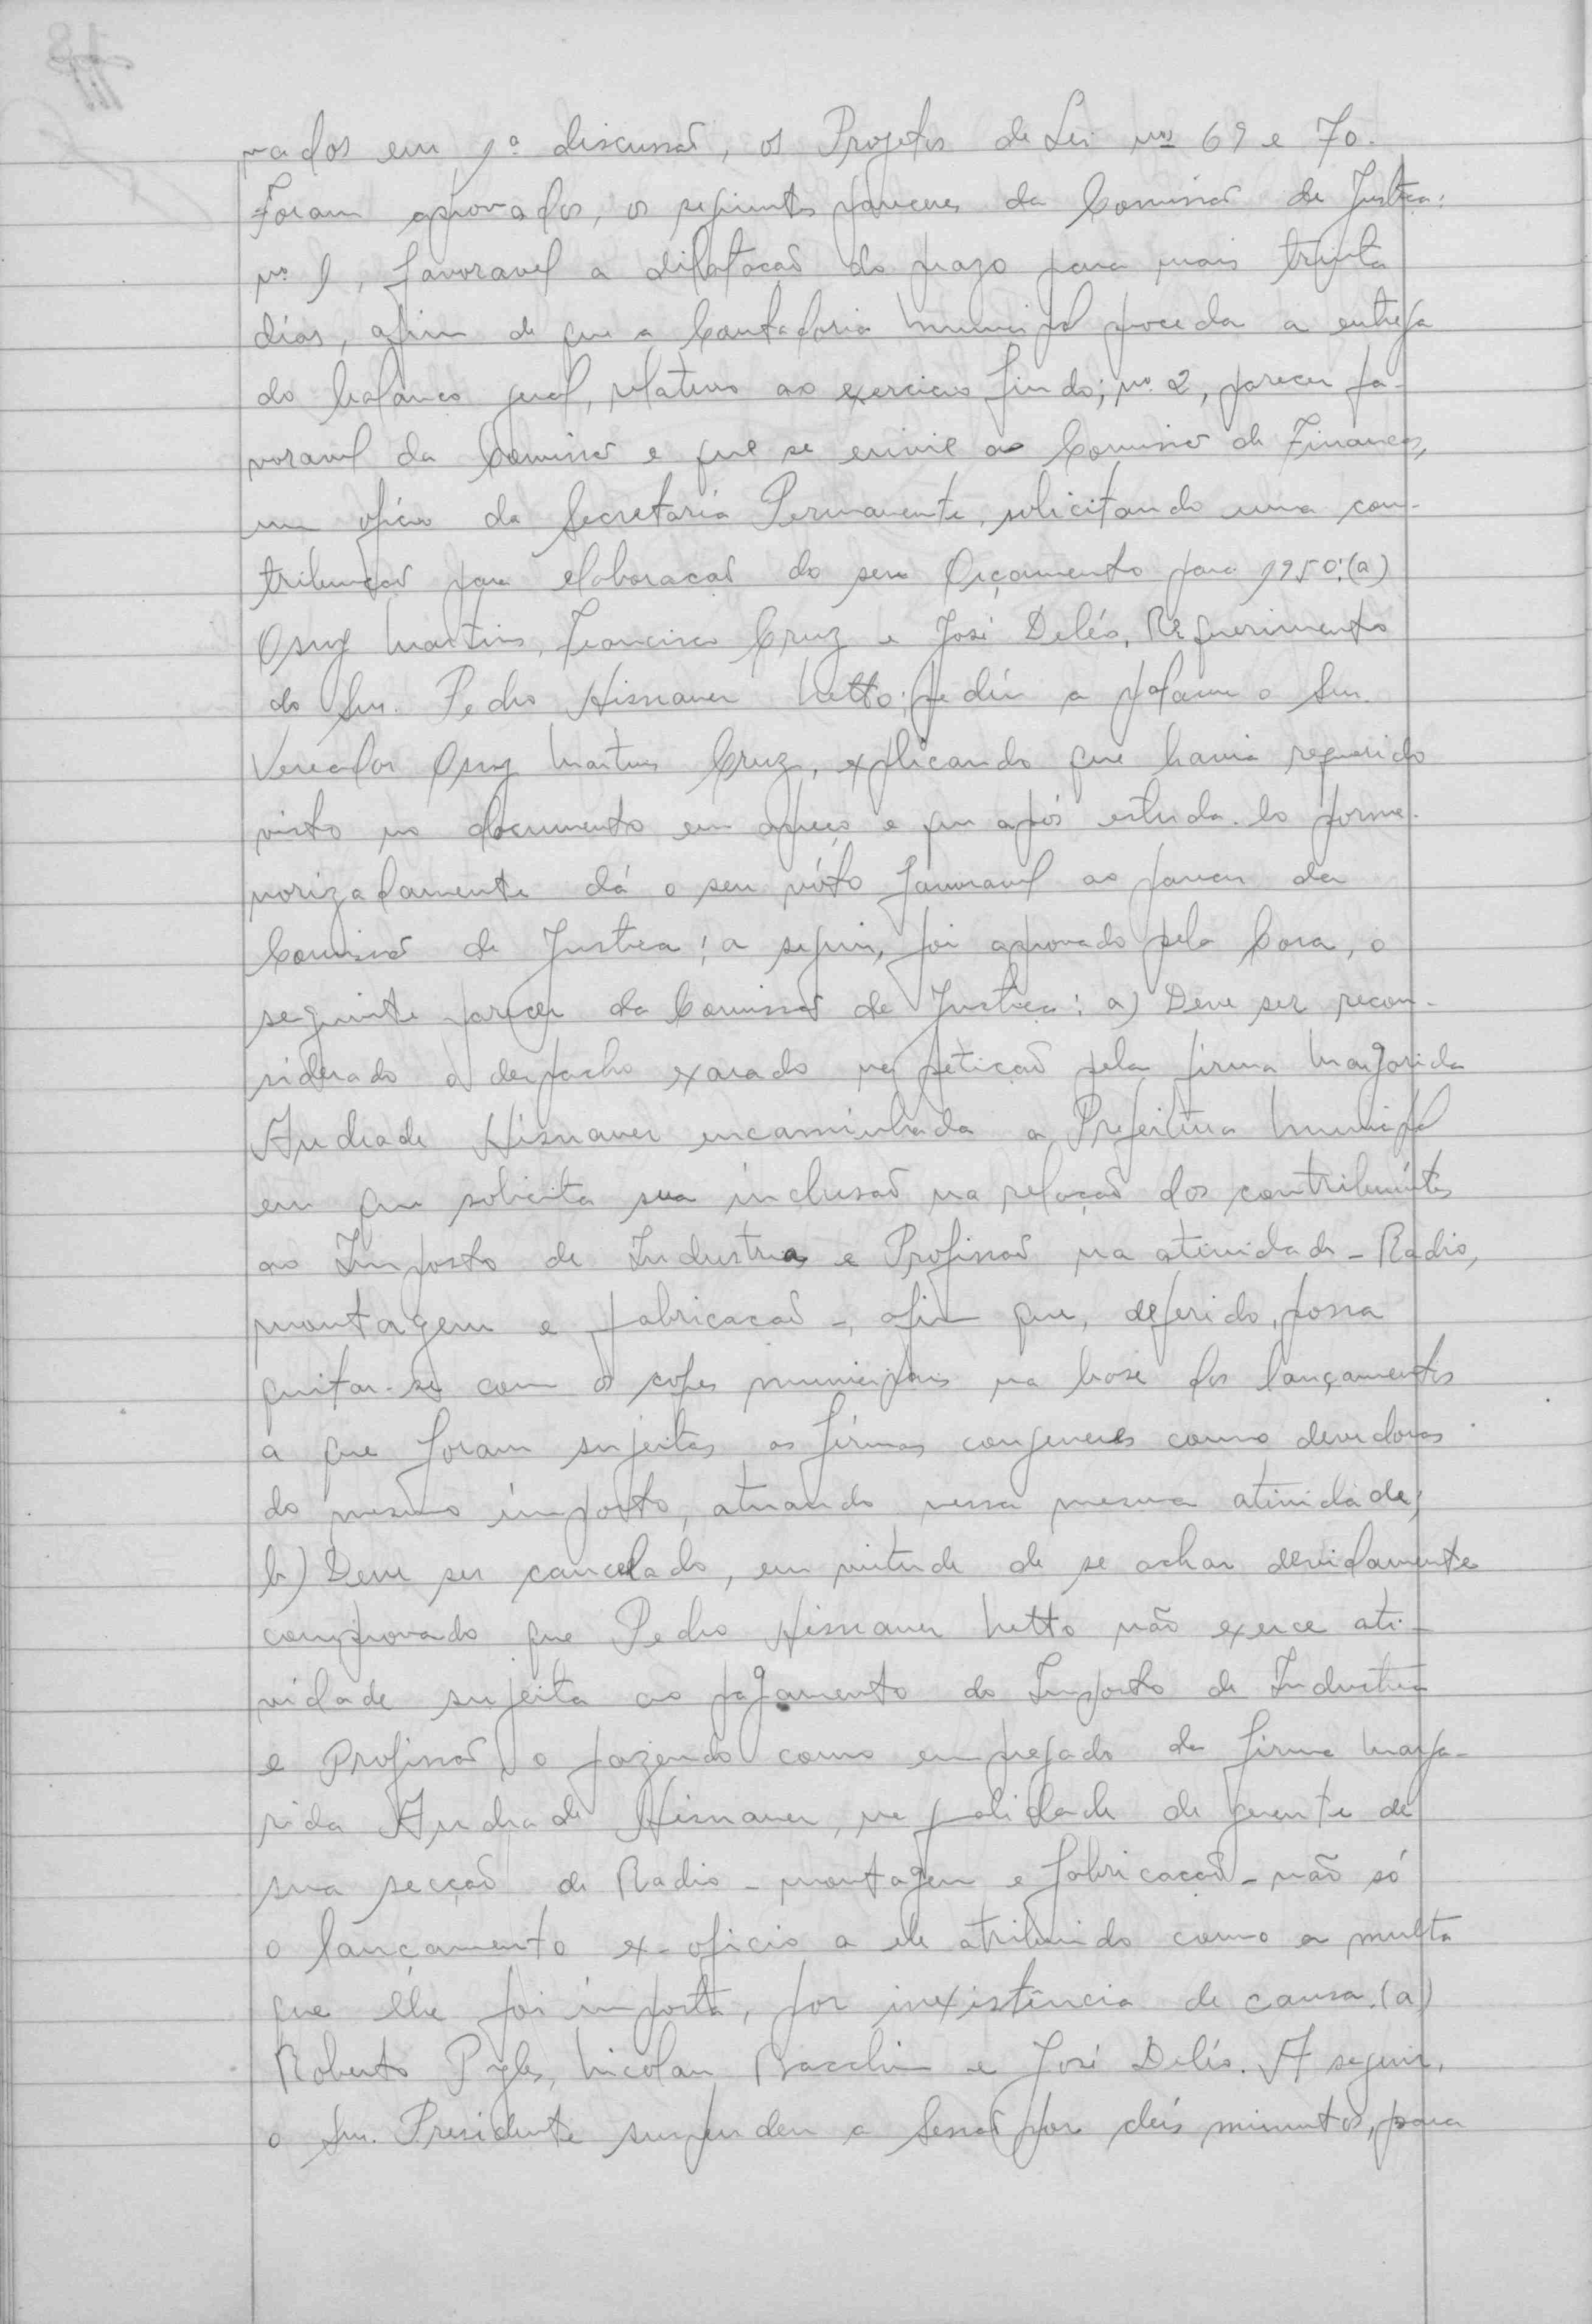 vados em 1ª discussaõ, os Projetos de Lei nos 69 e 70.
Foram aprovados, os seguintes pareceres da Comissaõ de Justiça:
nº 1, favoravel a dilataçaõ do prazo para mais trinta
dias, afim de que a Contadoria Municipal proceda a entrega
do balanço geral, relativo ao exercicio findo; nº 2, parecer fa-
voravel da Comissaõ e que se envie ao Comissaõ de Finanças,
um oficio da Secretaria Permanente, solicitando uma con-
tribuiçaõ para elaboraçaõ do seu Orçamento para 1950: (a)
Osny Martins, Francisco Cruz e José Deléo, Requerimento
do Snr. Pedro Hismauer Netto; pediu a palavra o Snr.
Vereador Osny Martins Cruz, explicando que havia requerido
visto no documento em apreço e que após estuda-lo porme-
norizadamente dá o seu vóto favoravel ao parecer da
Comissaõ de Justiça; a seguir, foi aprovado pela Casa, o
seguinte parecer da Comissaõ de Justiça: a) Deve ser recon-
siderado o despacho exarado na petiçaõ pela firma Margarida
Andrade Hismauer encaminhada a Prefeitura Municipal
em que solicita sua inclusaõ na relaçaõ dos contribuintes
ao Imposto de Industria e Profissaõ na atividade - Radio,
montagem e fabricacaõ -, afim que, deferido, possa
quitar-se com os cofres municipais na base dos lançamentos
a que foram sujeitas as firmas congeneres como devedoras
do mesmo imposto, atuando nessa mesma atividade;
b) Deve ser cancelado, em virtude de se achar devidamente
comprovado que Pedro Hismauer Netto não exerce ati-
vidade sujeita ao pagamento do Imposto de Industria
e Profissaõ, o fazendo como empregado da firma Marga-
rida Andrade Hismauer, na qalidade de gerente de
sua secçaõ de Radio - montagem e fabricacaõ - não só
o lançamento ex-oficio a ele atribuido como a multa
que lhe foi imposta, por inexistência de causa. (a)
Roberto Pyles, Nicolau Bacchin e José Deléo. A seguir,
o Snr. Presidente suspendeu a Sessaõ por deis minutos, para